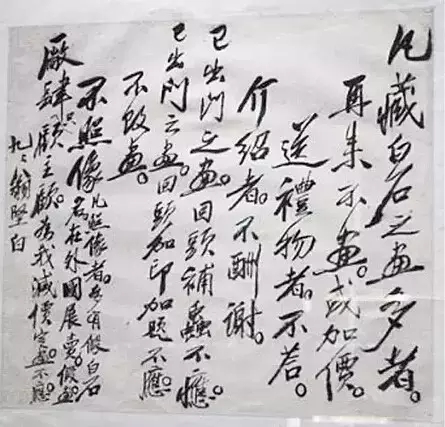 凡藏白石之畫多者。
再來不畫。或加價。
送禮物者。不荅。
介紹者。不酬謝。
已出門之畫。回頭補蟲不應。
已出門之畫。回頭加印加題不應。
不改畫。
不照像 凡照像者。多有假白石
名在外國展賣假畫。
廠肆只顧主顧。為我減價定畫不應。
九々翁堅白